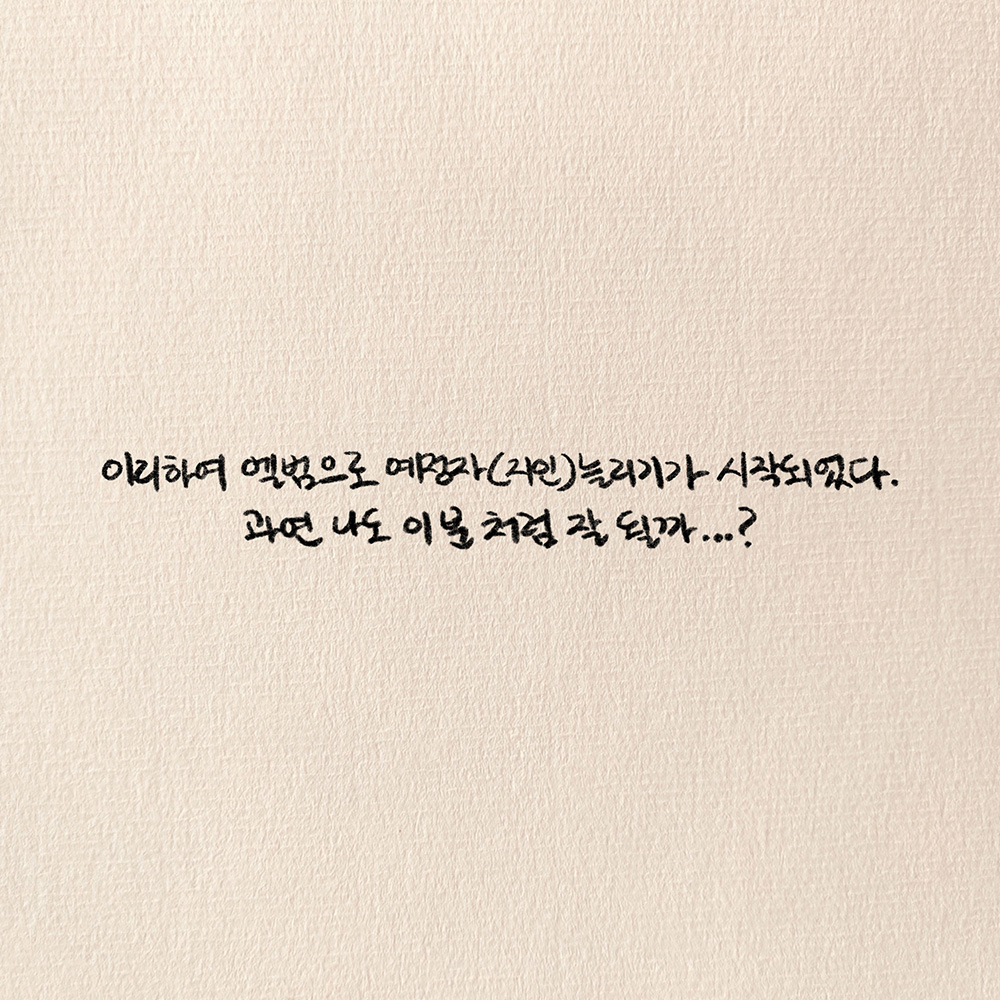 이리하여 엘범으로 예정자(지인)놀리기가 시작되었다.
과연 나도 이분처럼 잘 될까...?